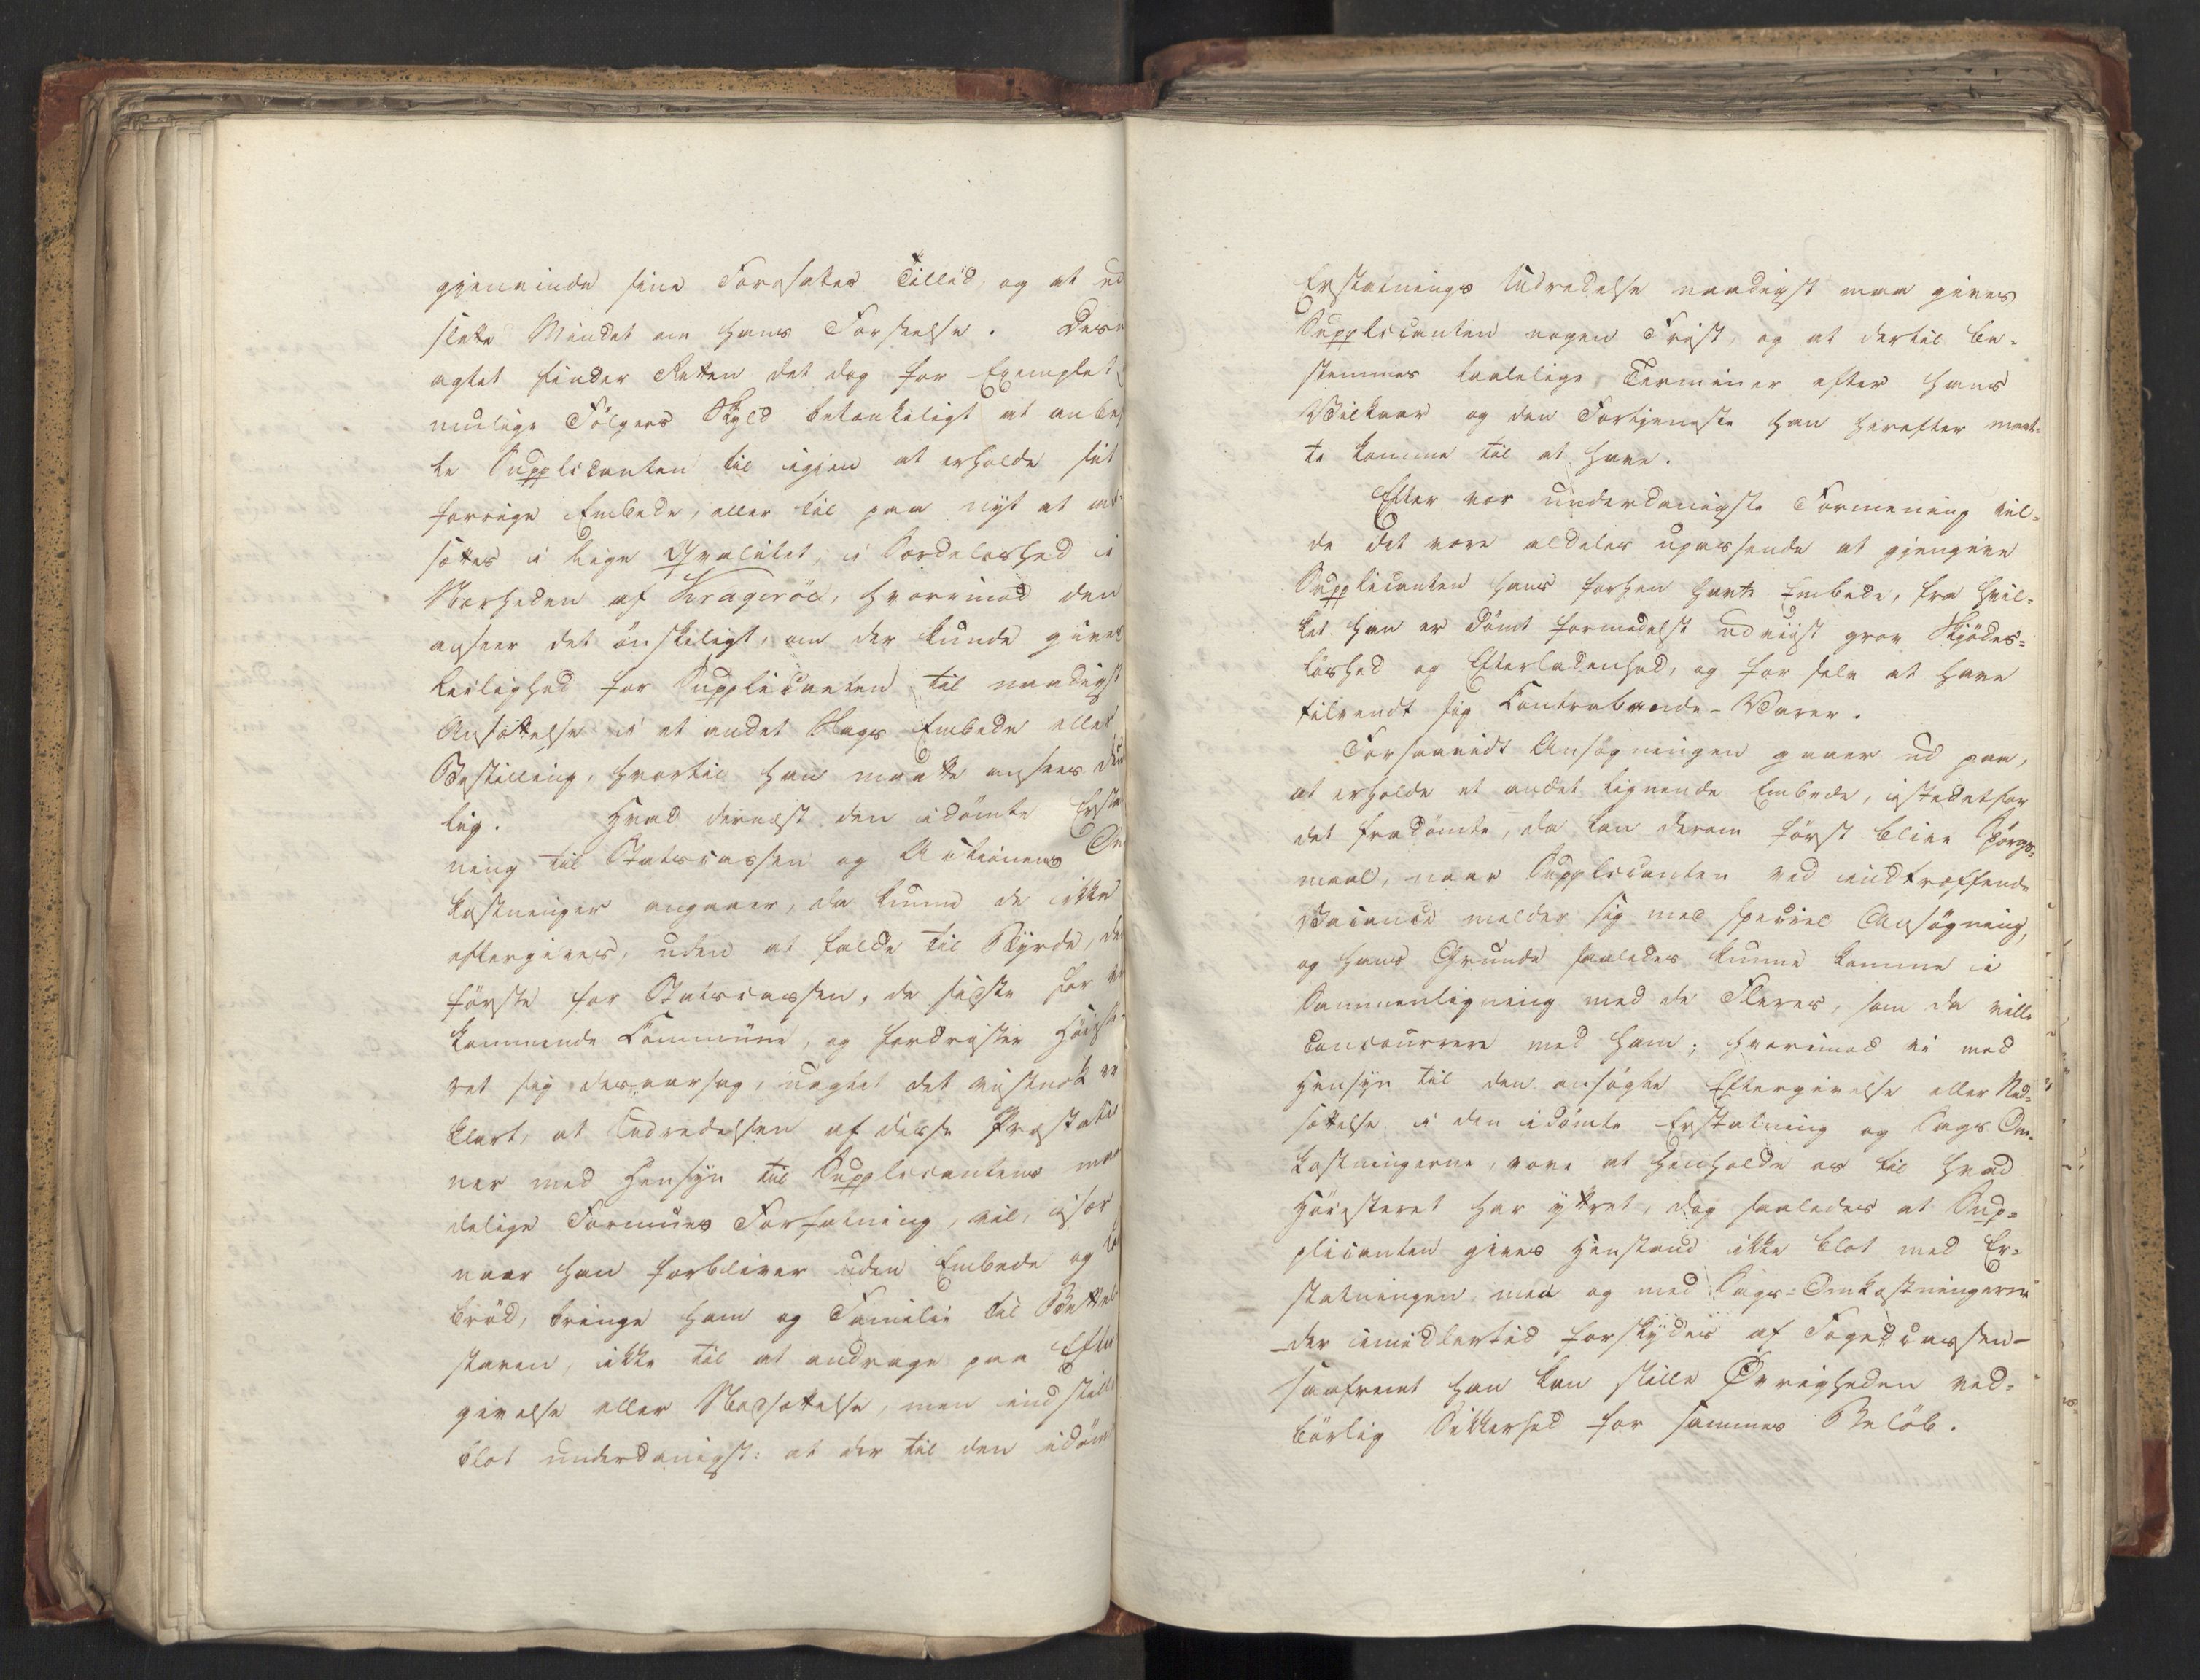 gjenvinde sine Foresattes Tillid, og at ud
slette Mindet om hans Forseelse. Dess
agtet finder Retten det dog for Exemplet
mulige Følgers Skyld betænkeligt at anbe
le Supplicanten til igjen at erholde sit
forrige Embede, eller til paa nyt at an-
sættes i lige Qvalitet, i Særdeleshed i
Nærheden af Kragerøe, hvorimod den
anseer det ønskeligt, om der kunde gives
Leilighed for Supplicanten til naadigst
Ansættelse i et andet Slags Embede eller
Bestilling, hvortil han maatte ansees du
lig. Hvad dernæst den idømte Ersta
ning til Statscassen og Actionens Om
kostninger angaaer, da kunne de ikke
eftergives, uden at falde til Byrde, det
første for Statscassen, de sidste for ved
kommende Commune, og fordrister Høieste-
ret sig desaarsag, uagtet det vistnok er
klart, at Udredelsen af disse Præstatio-
ner med Hensyn til Supplicantens maa
delige Formues Forfatning, vil, især
naar han forbliver uden Embede og Le
brød, bringe ham og Familie til Bettel-
staven, ikke til at andrage paa Efter
givelse eller Nedsættelse, men indstille
blot underdanigst: at der til den idøm
Erstatnings Udredelse naadigst maa gives
Supplicanten nogen Frist, og at dertil be-
stemmes taalelige Terminer efter hans
Vilkaar og den Fortjeneste han herefter maat-
te komme til at have.
Efter vor underdanigste Formening vil-
de det være aldeles upassende at gjengive
Supplicanten hans forhen havte Embede, fra hvil-
ket han er dømt formedelst udviist grov Skjødes-
løshed og Efterladenhed, og for selv at have
tilvendt sig Contrabande-Varer.
Forsaavidt Ansøgningen gaaer ud paa,
at erholde et andet lignende Embede, istedetfor
det fradømte, da kan derom først blive Spørgs-
maal, naar Supplicanten ved indtræffende
Vacance melder sig med speciel Ansøgning,
og hans Grunde saaledes kunne komme i
Sammenligning med de Fleres, som da ville
concourrere med ham; hvorimod vi med
Hensyn til den ansøgte Eftergivelse eller Ned-
sættelse i den idømte Erstatning og Sags Om-
kostningerne, vove at henholde os til hvad
Høiesteret har yttret, dog saaledes at Sup-
plicanten gives Henstand ikke blot med Er-
statningen, men og med Sags-Omkostningerne
– der imidlertid forskydes af Fogedcassen –
saafremt han kan stille Øvrigheden ved-
børlig Sikkerhed for sammes Beløb.